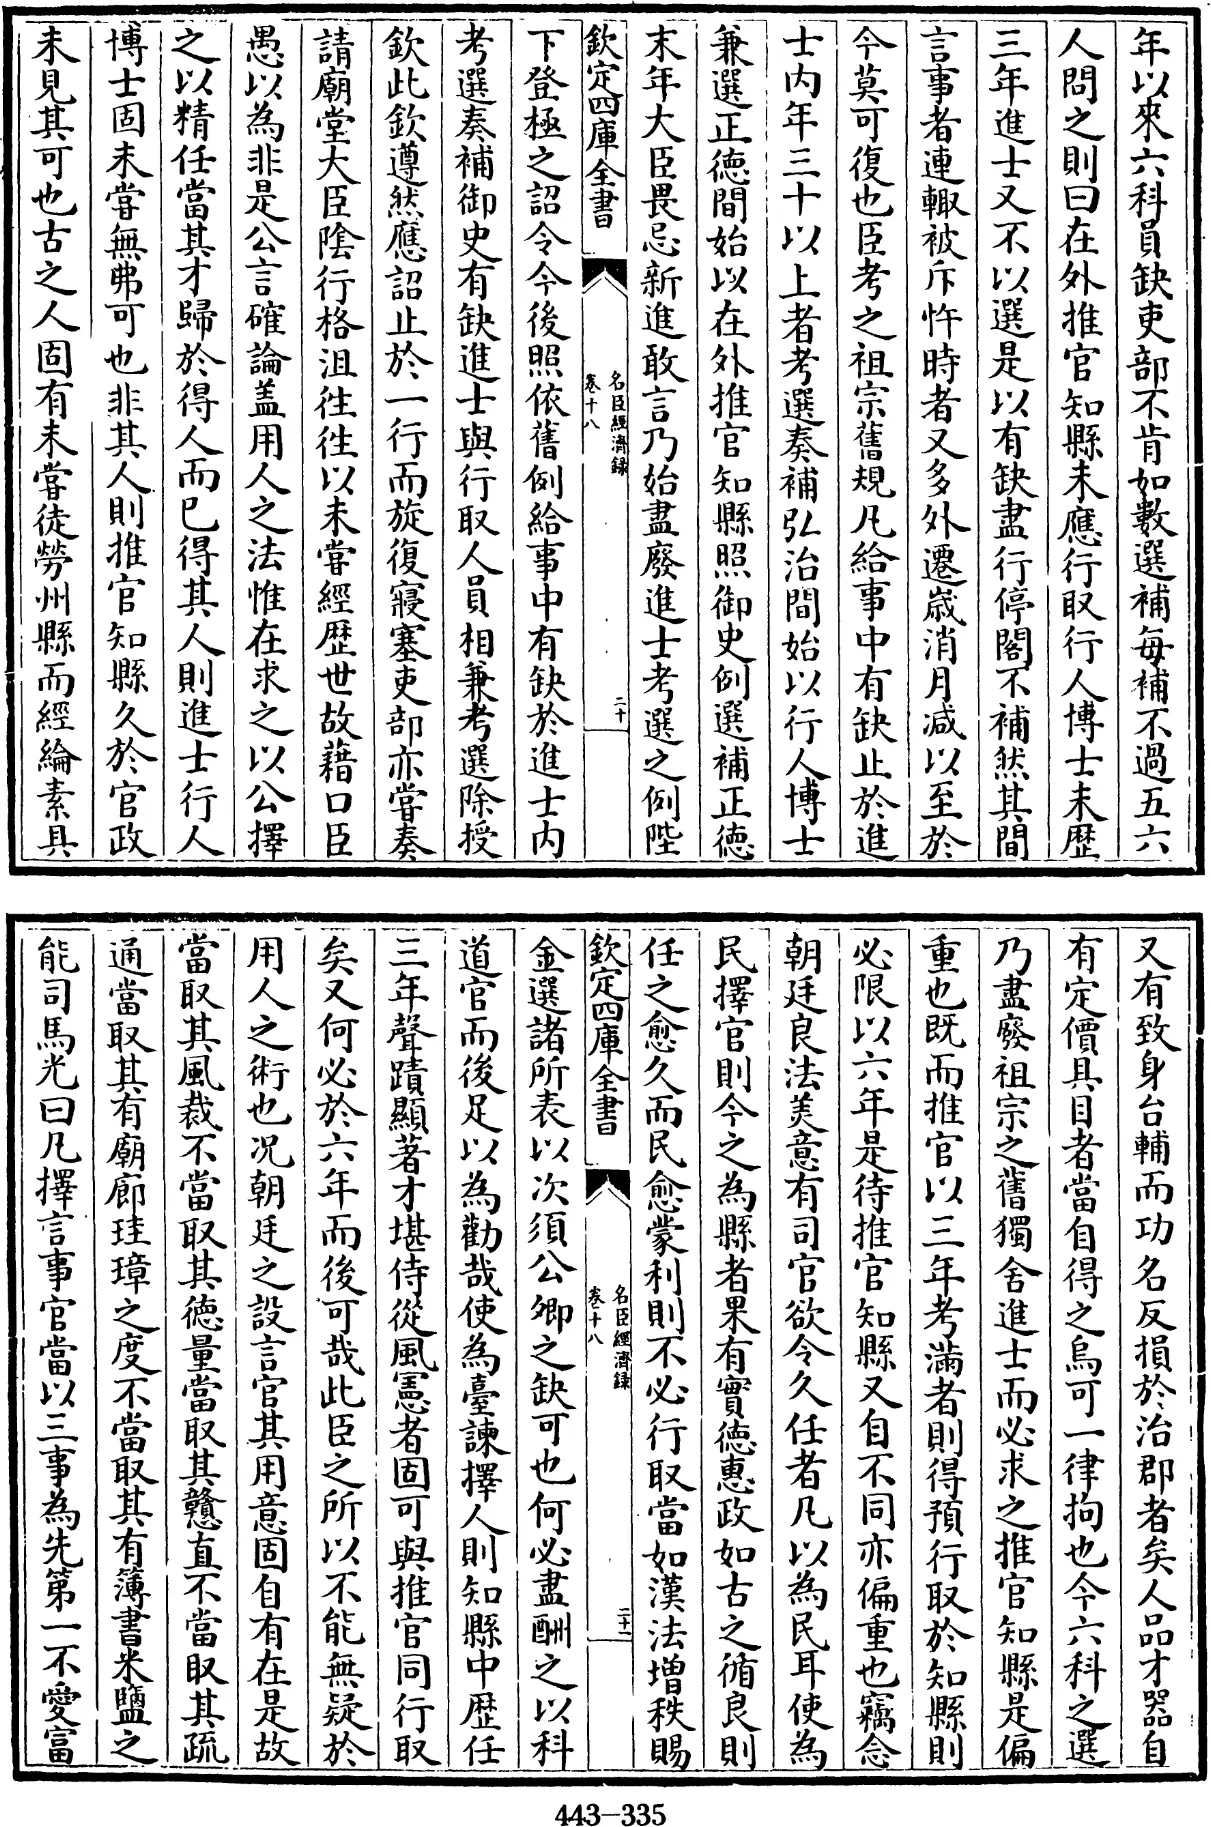 年以來六科員缺吏部不肯如數選補每補不過五六
人問之則曰在外推官知縣未應行取行人博士未歴
三年進士又不以選是以有缺盡行停閣不補然其間
言事者連輙被斥忤時者又多外遷嵗消月减以至於
今莫可復也臣考之祖宗舊規凡給事中有缺止於進
士内年三十以上者考選奏補弘治間始以行人博士
兼選正徳間始以在外推官知縣照御史例選補正徳
末年大臣畏忌新進敢言乃始盡廢進士考選之例陛
欽定四庫全書
名臣經濟録
卷十八
二十
下登極之詔令今後照依舊例給事中有缺於進士内
考選奏補御史有缺進士與行取人員相兼考選除授
欽此欽遵然應詔止於一行而旋復寢塞吏部亦嘗奏
請廟堂大臣隂行格沮徃徃以未嘗經歴世故藉口臣
愚以為非是公言確論盖用人之法惟在求之以公擇
之以精任當其才歸於得人而已得其人則進士行人
博士固未嘗無弗可也非其人則推官知縣久於官政
未見其可也古之人固有未嘗徒勞州縣而經綸素具
又有致身台輔而功名反損於治郡者矣人品才器自
有定價具目者當自得之烏可一律拘也今六科之選
乃盡廢祖宗之舊獨舍進士而必求之推官知縣是偏
重也既而推官以三年考滿者則得預行取於知縣則
必限以六年是待推官知縣又自不同亦偏重也竊念
朝廷良法美意有司官欲令久任者凡以為民耳使為
民擇官則今之為縣者果有實徳惠政如古之循良則
任之愈久而民愈蒙利則不必行取當如漢法増秩賜
欽定四庫全書
名臣經濟録
卷十八
二十一
金選諸所表以次須公卿之缺可也何必盡酬之以科
道官而後足以為勸哉使為臺諫擇人則知縣中歴任
三年聲蹟顯著才堪侍從風憲者固可與推官同行取
矣又何必於六年而後可哉此臣之所以不能無疑於
用人之術也况朝廷之設言官其用意固自有在是故
當取其風裁不當取其徳量當取其戇直不當取其疏
通當取其有廟廊珪璋之度不當取其有簿書米鹽之
能司馬光曰凡擇言事官當以三事為先第一不愛富
443-335